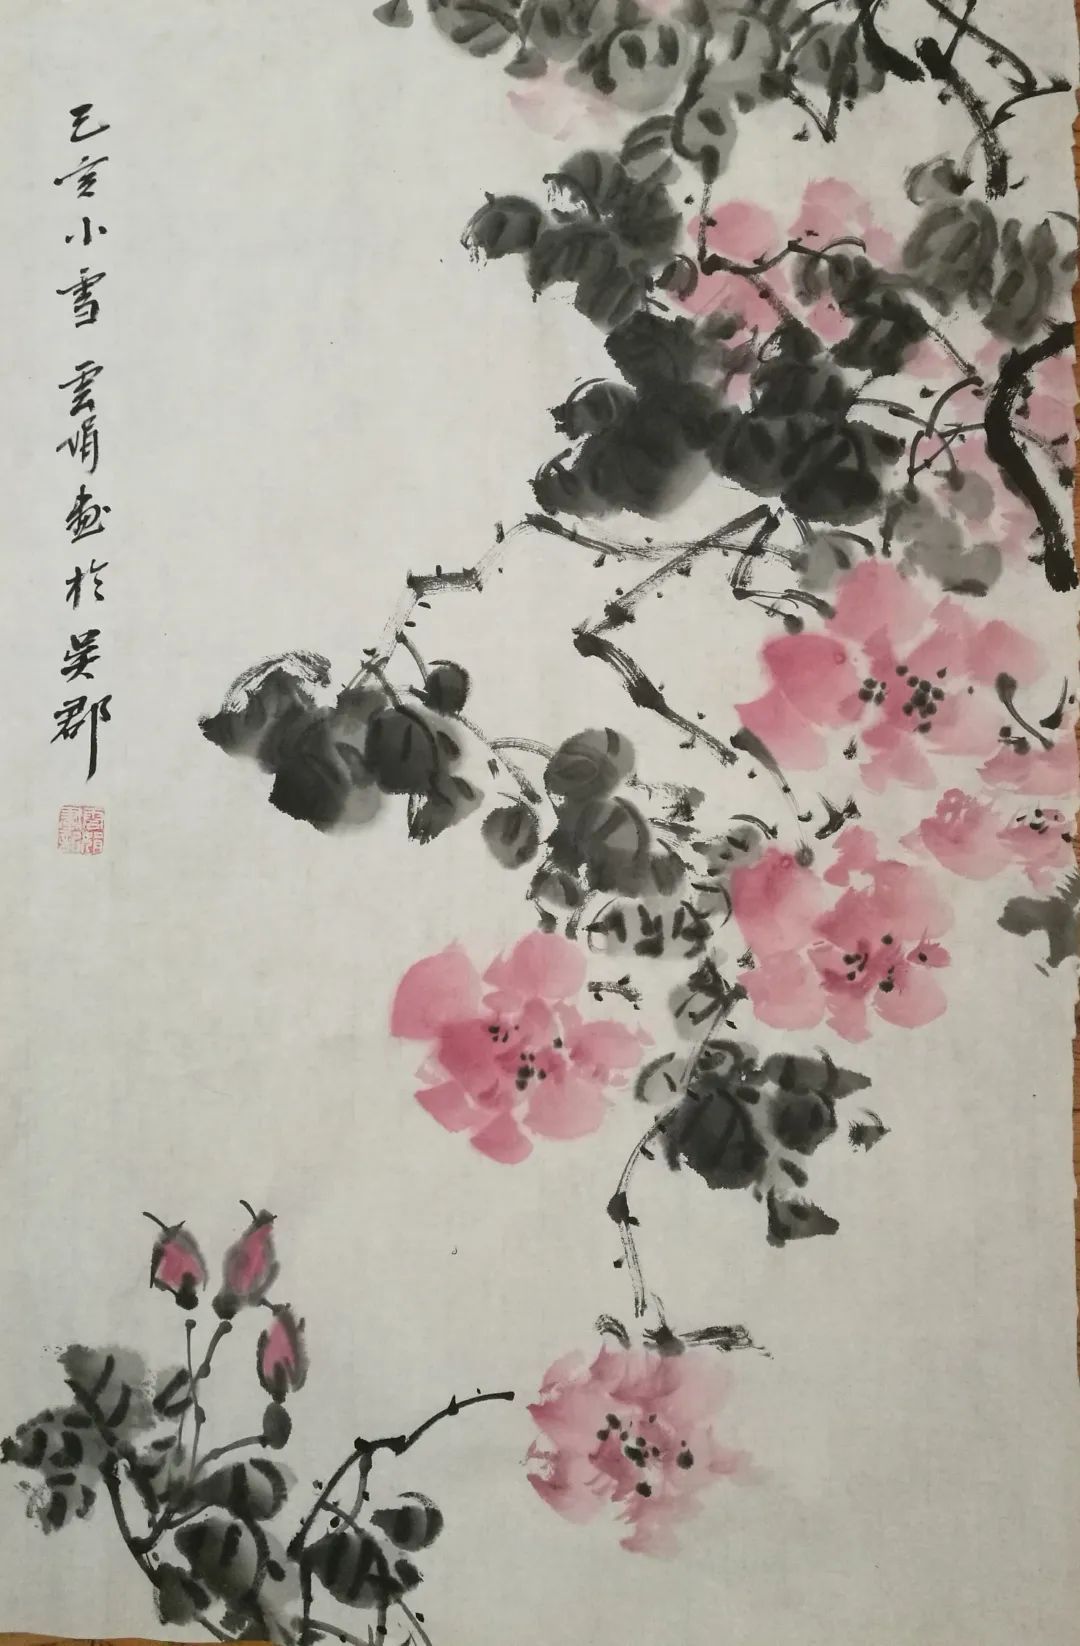 己亥小雪雲娟畫於吳郡